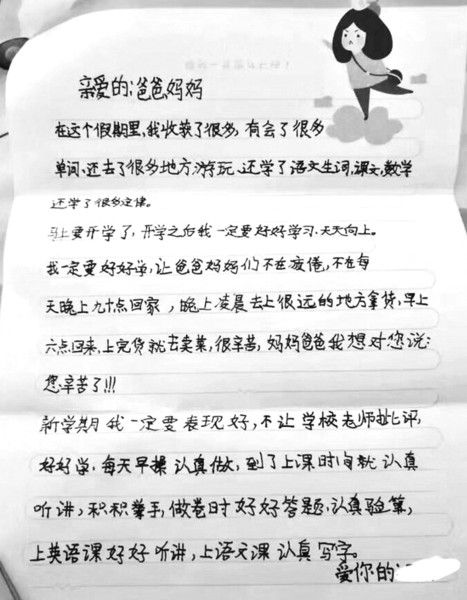 亲爱的:爸爸妈妈
在这个假期里,我收获了很多,有会了很多
单词、还去了很多地方游玩、还学了语文生词,课文,数学
还学了很多定律。
马上要开学了,开学之后我一定要好好学习、天天向上。
我一定要好好学,让爸爸妈妈们不在疲倦,不在每
天晚上九十点回家,晚上凌晨去上很远的地方拿货,早上
六点回来,上完货就去卖菜,很辛苦,妈妈爸爸我想对您说:
您辛苦了!!!
新学期我一定要表现好,不让学校老师批评,
好好学,每天早操认真做,到了上课时间就认真
听讲,积积举手,做卷时好好答题,认真验算,
上英语课好好听讲,上语文课认真写字。
爱你的: